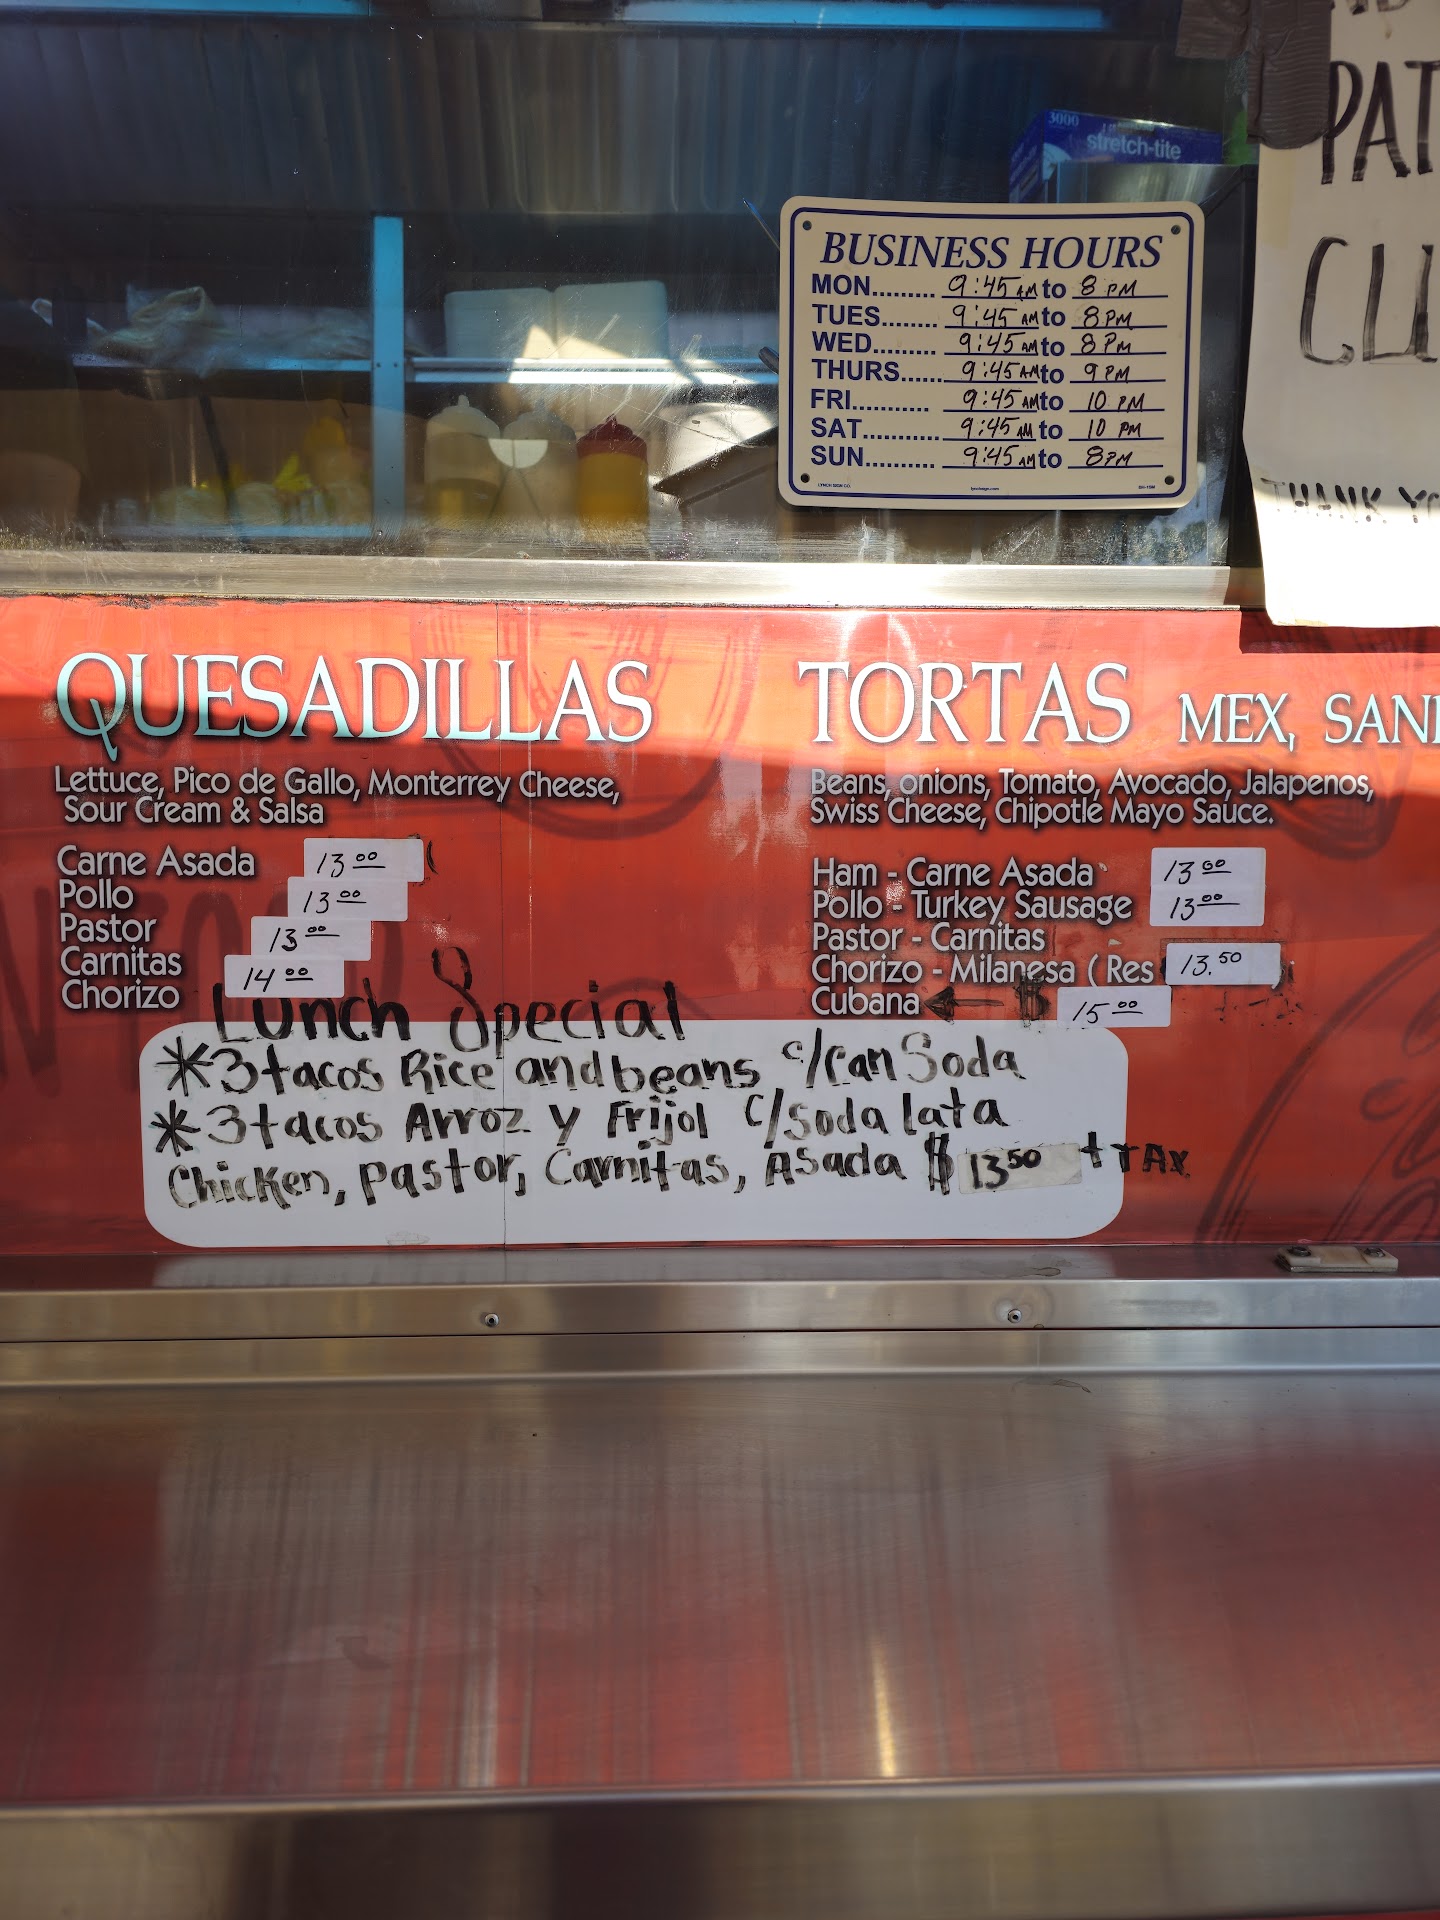 3000
stretch-tite
PAT
CLI
THANK YO
BUSINESS HOURS
MON......... 9:45 AM to 8 PM
TUES........ 9:45 AM to 8 PM
WED......... 9:45 AM to 8 PM
THURS...... 9:45 AM to 9 PM
FRI........... 9:45 AM to 10 PM
SAT............ 9:45 AM to 10 PM
SUN.......... 9:45 AM to 8 PM
QUESADILLAS
Lettuce, Pico de Gallo, Monterrey Cheese,
Sour Cream & Salsa
Carne Asada 13 00
Pollo 13 00
Pastor 13 00
Carnitas 14 00
Chorizo
TORTAS MEX, SAN
Beans, onions, Tomato, Avocado, Jalapenos,
Swiss Cheese, Chipotle Mayo Sauce.
Ham - Carne Asada 13 00
Pollo - Turkey Sausage 13 00
Pastor - Carnitas
Chorizo - Milanesa ( Res 13.50
Cubana $ 15 00
Lunch Special
*3 tacos Rice and beans c/can Soda
*3 tacos Arroz y Frijol c/soda lata
Chicken, pastor, Carnitas, Asada $ 13 50 + TAX